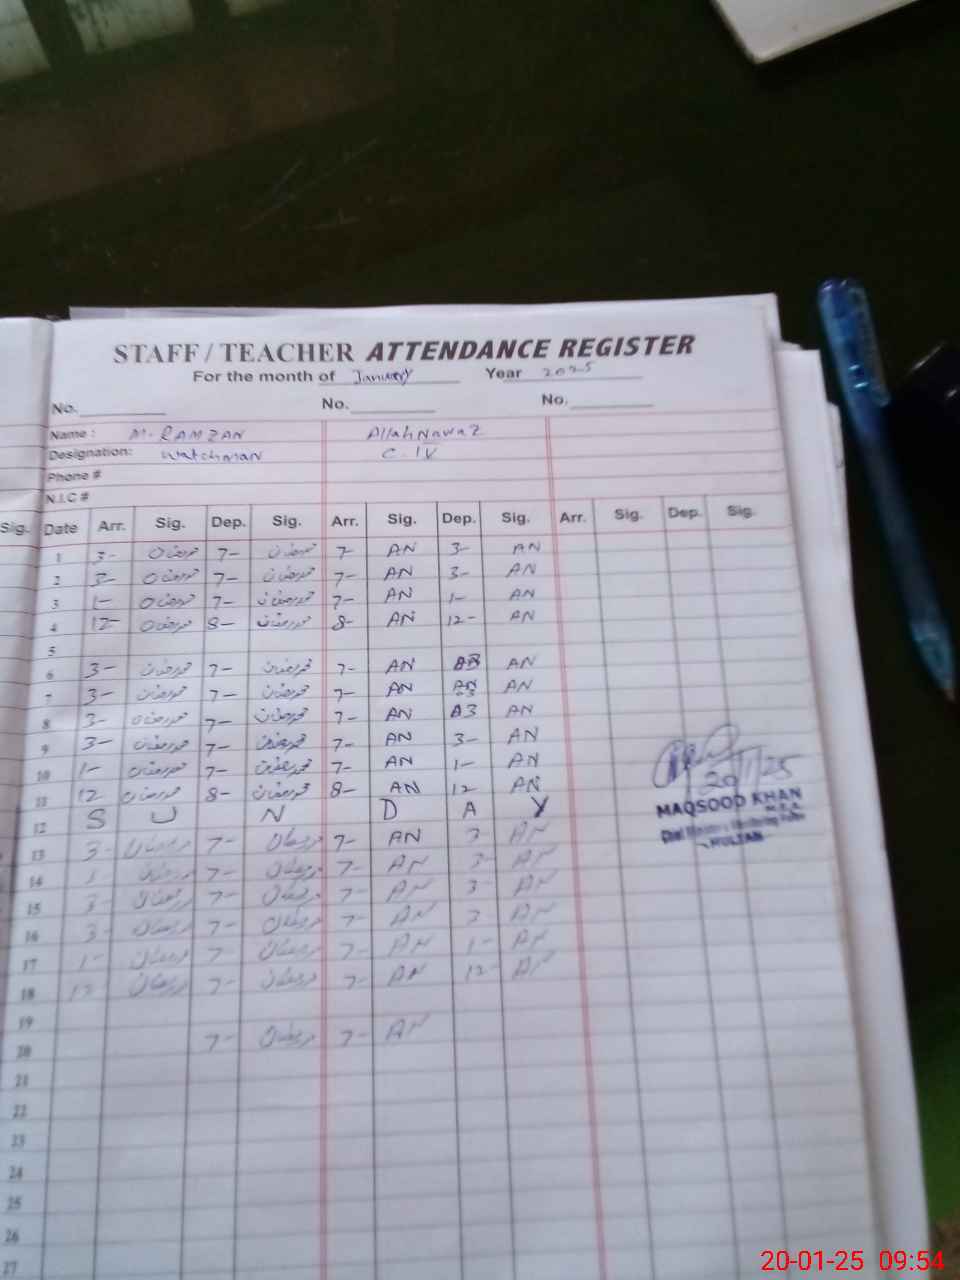 STAFF / TEACHER ATTENDANCE REGISTER
For the month of January Year 2025
No. No. No.
Name : M. RAMZAN Allah Nawaz
Designation: Watchman C. IV
Phone #
N.I.C #
Sig. Date Arr. Sig. Dep. Sig. Arr. Sig. Dep. Sig. Arr. Sig. Dep. Sig.
1 3- محمد رمضان 7- محمد رمضان 7- AN 3- AN
2 3- محمد رمضان 7- محمد رمضان 7- AN 3- AN
3 1- محمد رمضان 7- محمد رمضان 7- AN 1- AN
4 12- محمد رمضان 8- محمد رمضان 8- AN 12- AN
5
6 3- محمد رمضان 7- محمد رمضان 7- AN AN
7 3- محمد رمضان 7- محمد رمضان 7- AN AN
8 3- محمد رمضان 7- محمد رمضان 7- AN AN
9 3- محمد رمضان 7- محمد رمضان 7- AN 3- AN
10 1- محمد رمضان 7- محمد رمضان 7- AN 1- AN
11 12 محمد رمضان 8- محمد رمضان 8- AN 12 AN
12 S U N D A Y
13 3- محمد رمضان 7- محمد رمضان 7- AN 3 AN
14 1 محمد رمضان 7- محمد رمضان 7- AN 3- AN
15 3 محمد رمضان 7- محمد رمضان 7- AN 3- AN
16 3- محمد رمضان 7- محمد رمضان 7- AN 3 AN
17 1- محمد رمضان 7- محمد رمضان 7- AN 1- AN
18 12 محمد رمضان 7- محمد رمضان 7- AN 12- AN
19
20 7- محمد رمضان 7- AN
21
22
23
24
25
26
27
20/1/25
MAQSOOD KHAN
M.E.A
MULTAN
20-01-25 09:54